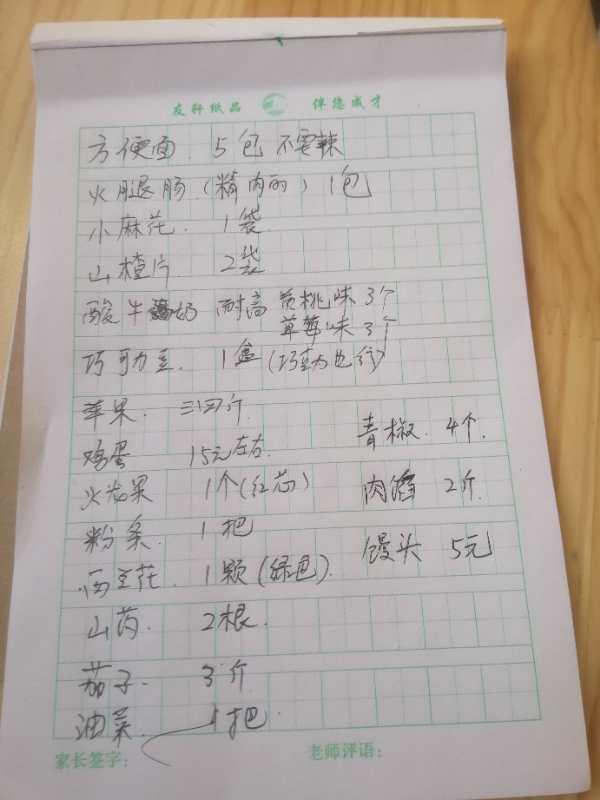 友轩纸品 伴您成才
方便面 5包 不要辣
火腿肠 (精肉的) 1包
小麻花. 1袋.
山楂片 2袋
酸牛奶 耐高 黄桃味 3个
草莓味 3个
巧可力豆. 1盒 (巧克力也行)
苹果. 三四斤.
鸡蛋 15元左右.
青椒. 4个.
火龙果 1个(红芯)
肉馅 2斤.
粉条. 1把
馒头 5元
西兰花. 1颗(绿色).
山药. 2根.
茄子. 3斤.
油菜. 1把.
家长签字: 老师评语: